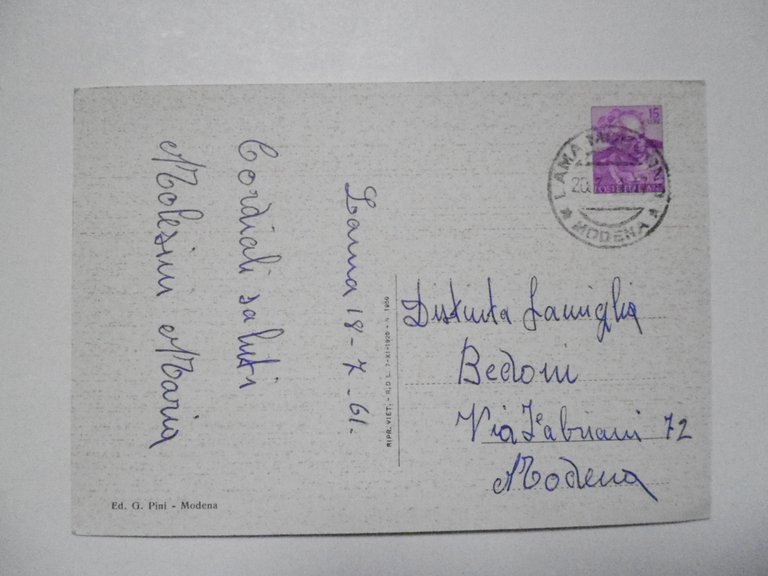 Lama 18-7-61.
Cordiali saluti
Molesini Maria
Distinta famiglia
Bedoni
Via Fabriani 72
Modena
15
LAMA
20.7
MODENA
RIPR. VIET. - R.D.L. 7-XI-1925 - N. 1950
Ed. G. Pini - Modena